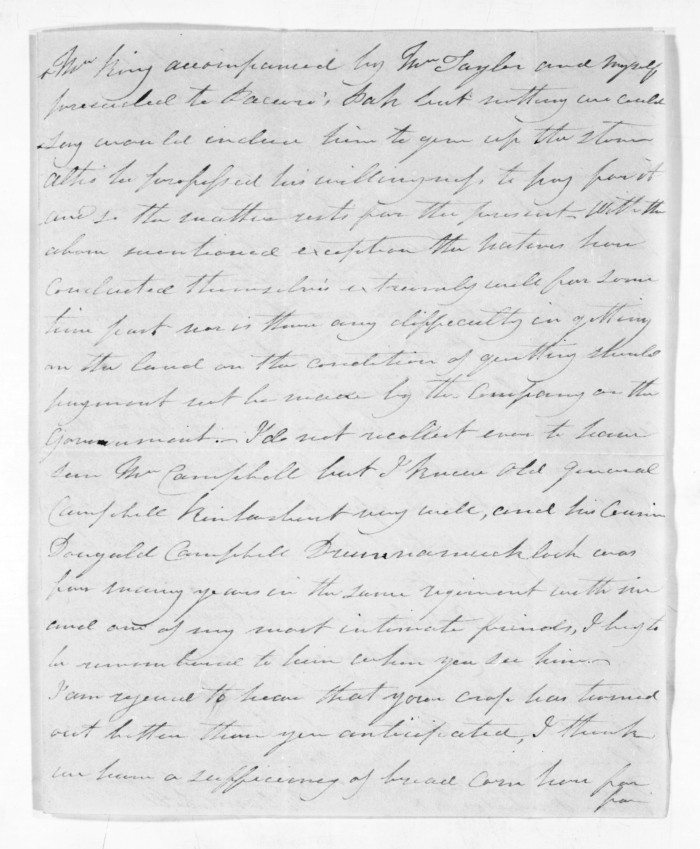 Mr King accompanied by Mr Taylor and myself
proceeded to Paccore's Pah but nothing we could
say would induce him to give up the stone
altho he professed his willingness to pay for it
and so the matter rests for the present - With the
above mentioned exception the Natives have
conducted themselves extremely well for some
time past nor is there any difficulty in getting
on the land on the condition of quitting should
payment not be made by the Company or the
Government. - I do not recollect ever to have
seen Mr Campbell but I knew old General
Campbell very well, and his Cousin
Dougald Campbell was
for many years in the same regiment with me
and one of my most intimate friends, I beg to
be remembered to him when you see him. -
I am rejoiced to hear that your crop has turned
out better than you anticipated, I think
we have a sufficiency of bread corn here for